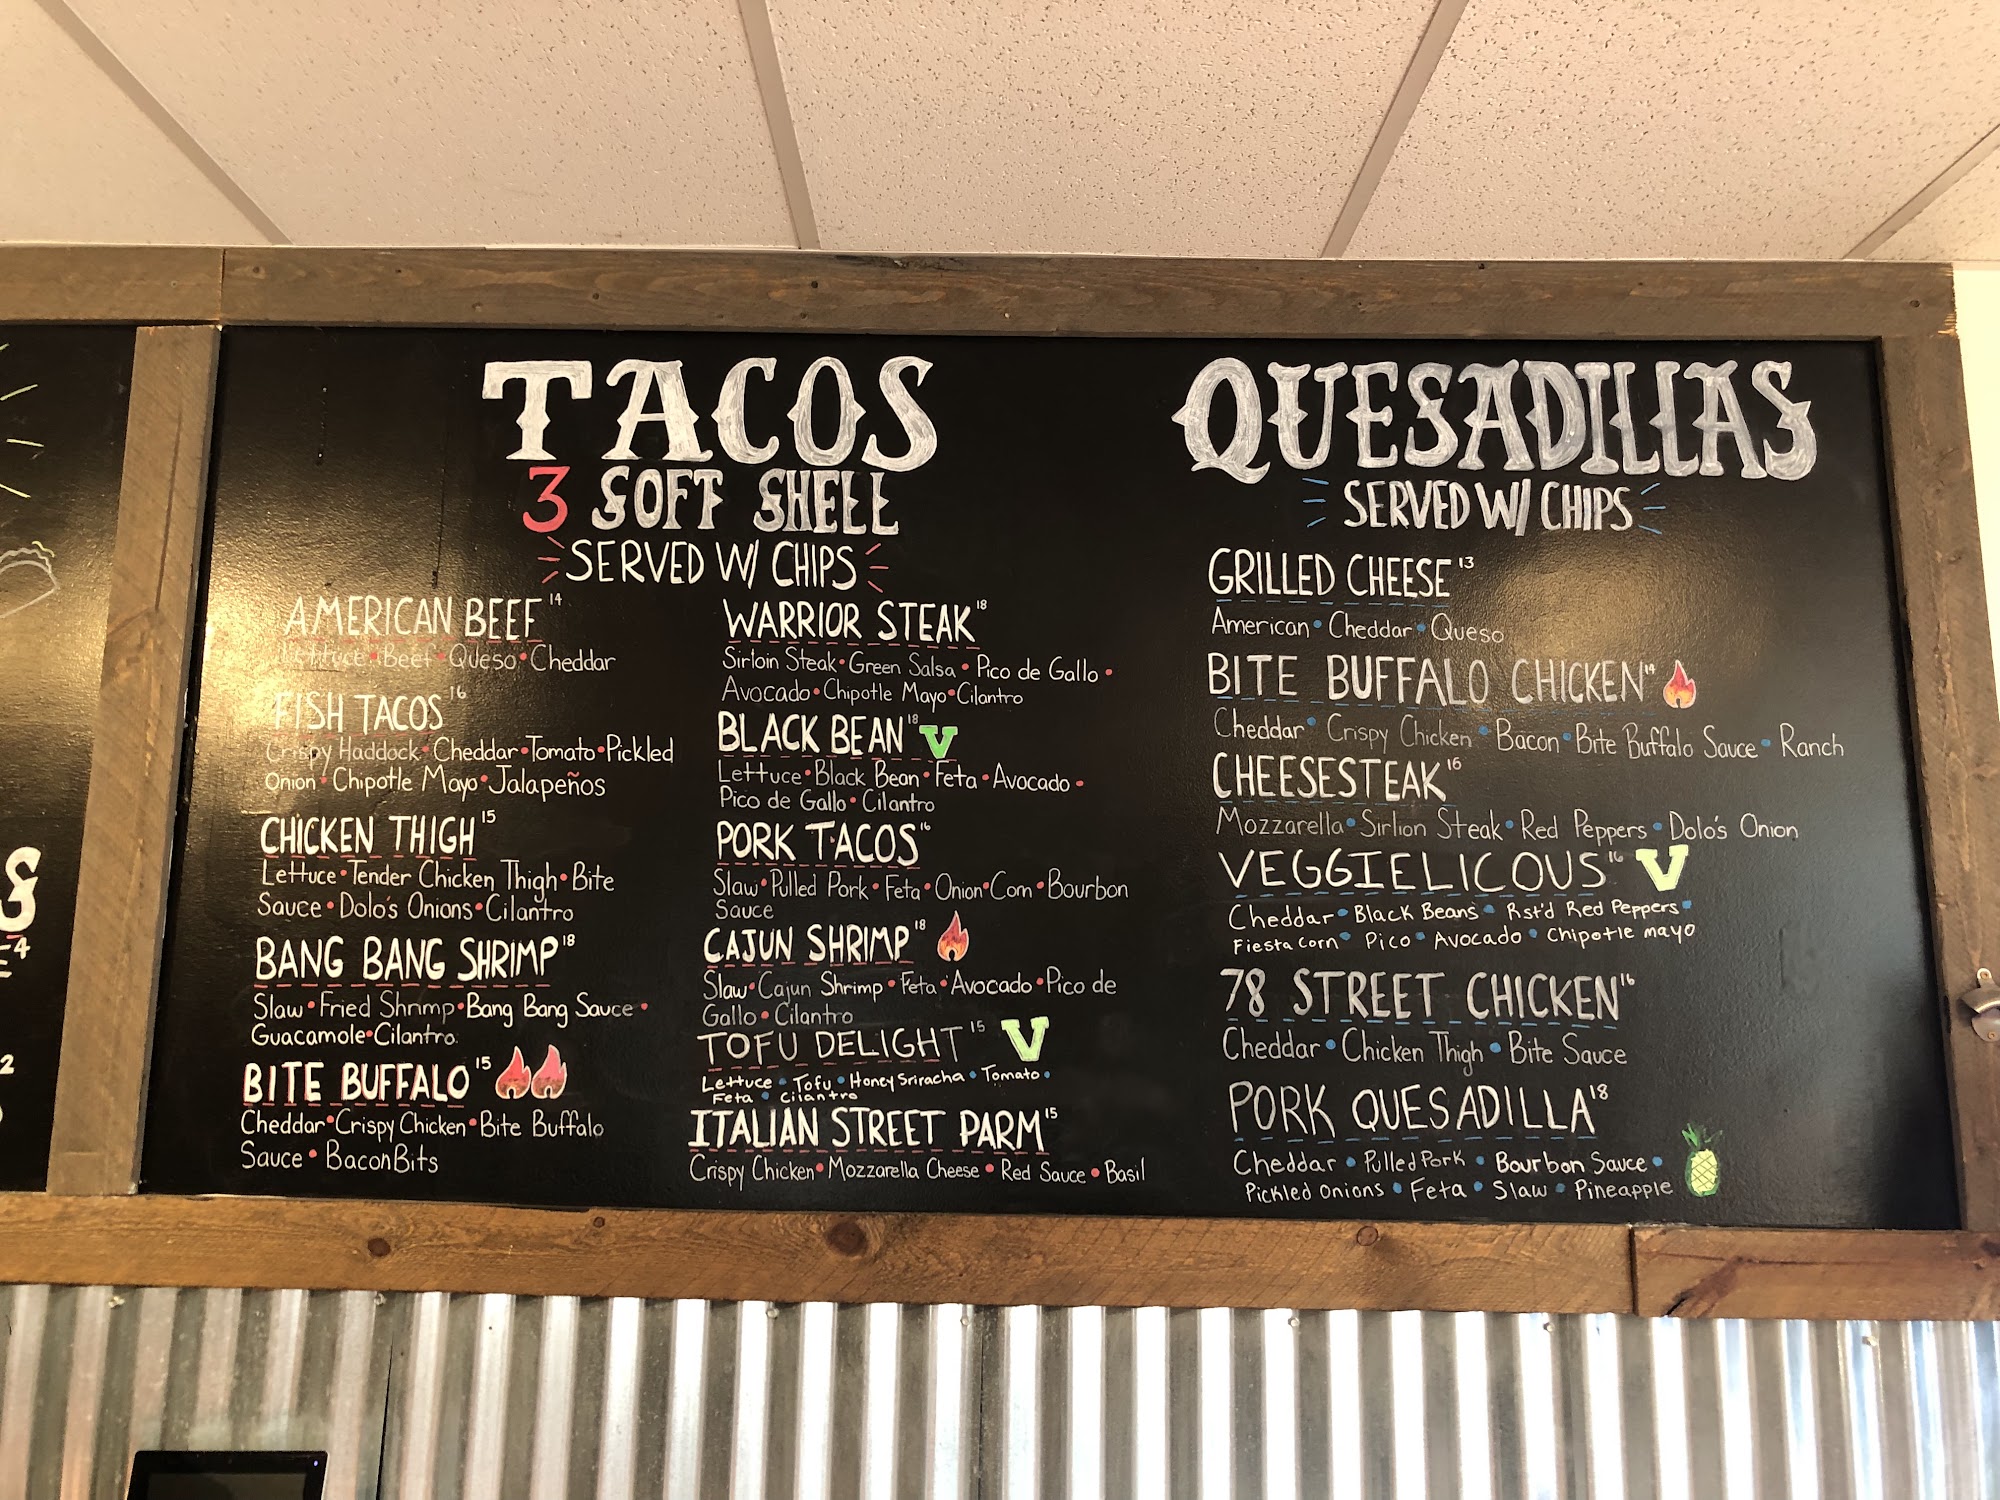 TACOS
3 SOFT SHELL
SERVED W/ CHIPS
AMERICAN BEEF 14
Lettuce • Beef • Queso • Cheddar
FISH TACOS 16
Crispy Haddock • Cheddar • Tomato • Pickled
Onion • Chipotle Mayo • Jalapeños
CHICKEN THIGH 15
Lettuce • Tender Chicken Thigh • Bite
Sauce • Dolo's Onions • Cilantro
BANG BANG SHRIMP 18
Slaw • Fried Shrimp • Bang Bang Sauce •
Guacamole • Cilantro
BITE BUFFALO 15
Cheddar • Crispy Chicken • Bite Buffalo
Sauce • Bacon Bits
WARRIOR STEAK 18
Sirloin Steak • Green Salsa • Pico de Gallo •
Avocado • Chipotle Mayo • Cilantro
BLACK BEAN 18 V
Lettuce • Black Bean • Feta • Avocado •
Pico de Gallo • Cilantro
PORK TACOS 16
Slaw • Pulled Pork • Feta • Onion • Corn • Bourbon
Sauce
CAJUN SHRIMP 18
Slaw • Cajun Shrimp • Feta • Avocado • Pico de
Gallo • Cilantro
TOFU DELIGHT 15 V
Lettuce • Tofu • Honey Sriracha • Tomato •
Feta • Cilantro
ITALIAN STREET PARM 15
Crispy Chicken • Mozzarella Cheese • Red Sauce • Basil
QUESADILLAS
SERVED W/ CHIPS
GRILLED CHEESE 13
American • Cheddar • Queso
BITE BUFFALO CHICKEN 14
Cheddar • Crispy Chicken • Bacon • Bite Buffalo Sauce • Ranch
CHEESESTEAK 16
Mozzarella • Sirlion Steak • Red Peppers • Dolo's Onion
VEGGIELICOUS 16 V
Cheddar • Black Beans • Rst'd Red Peppers •
Fiesta Corn • Pico • Avocado • Chipotle mayo
78 STREET CHICKEN 16
Cheddar • Chicken Thigh • Bite Sauce
PORK QUESADILLA 18
Cheddar • Pulled Pork • Bourbon Sauce •
Pickled Onions • Feta • Slaw • Pineapple